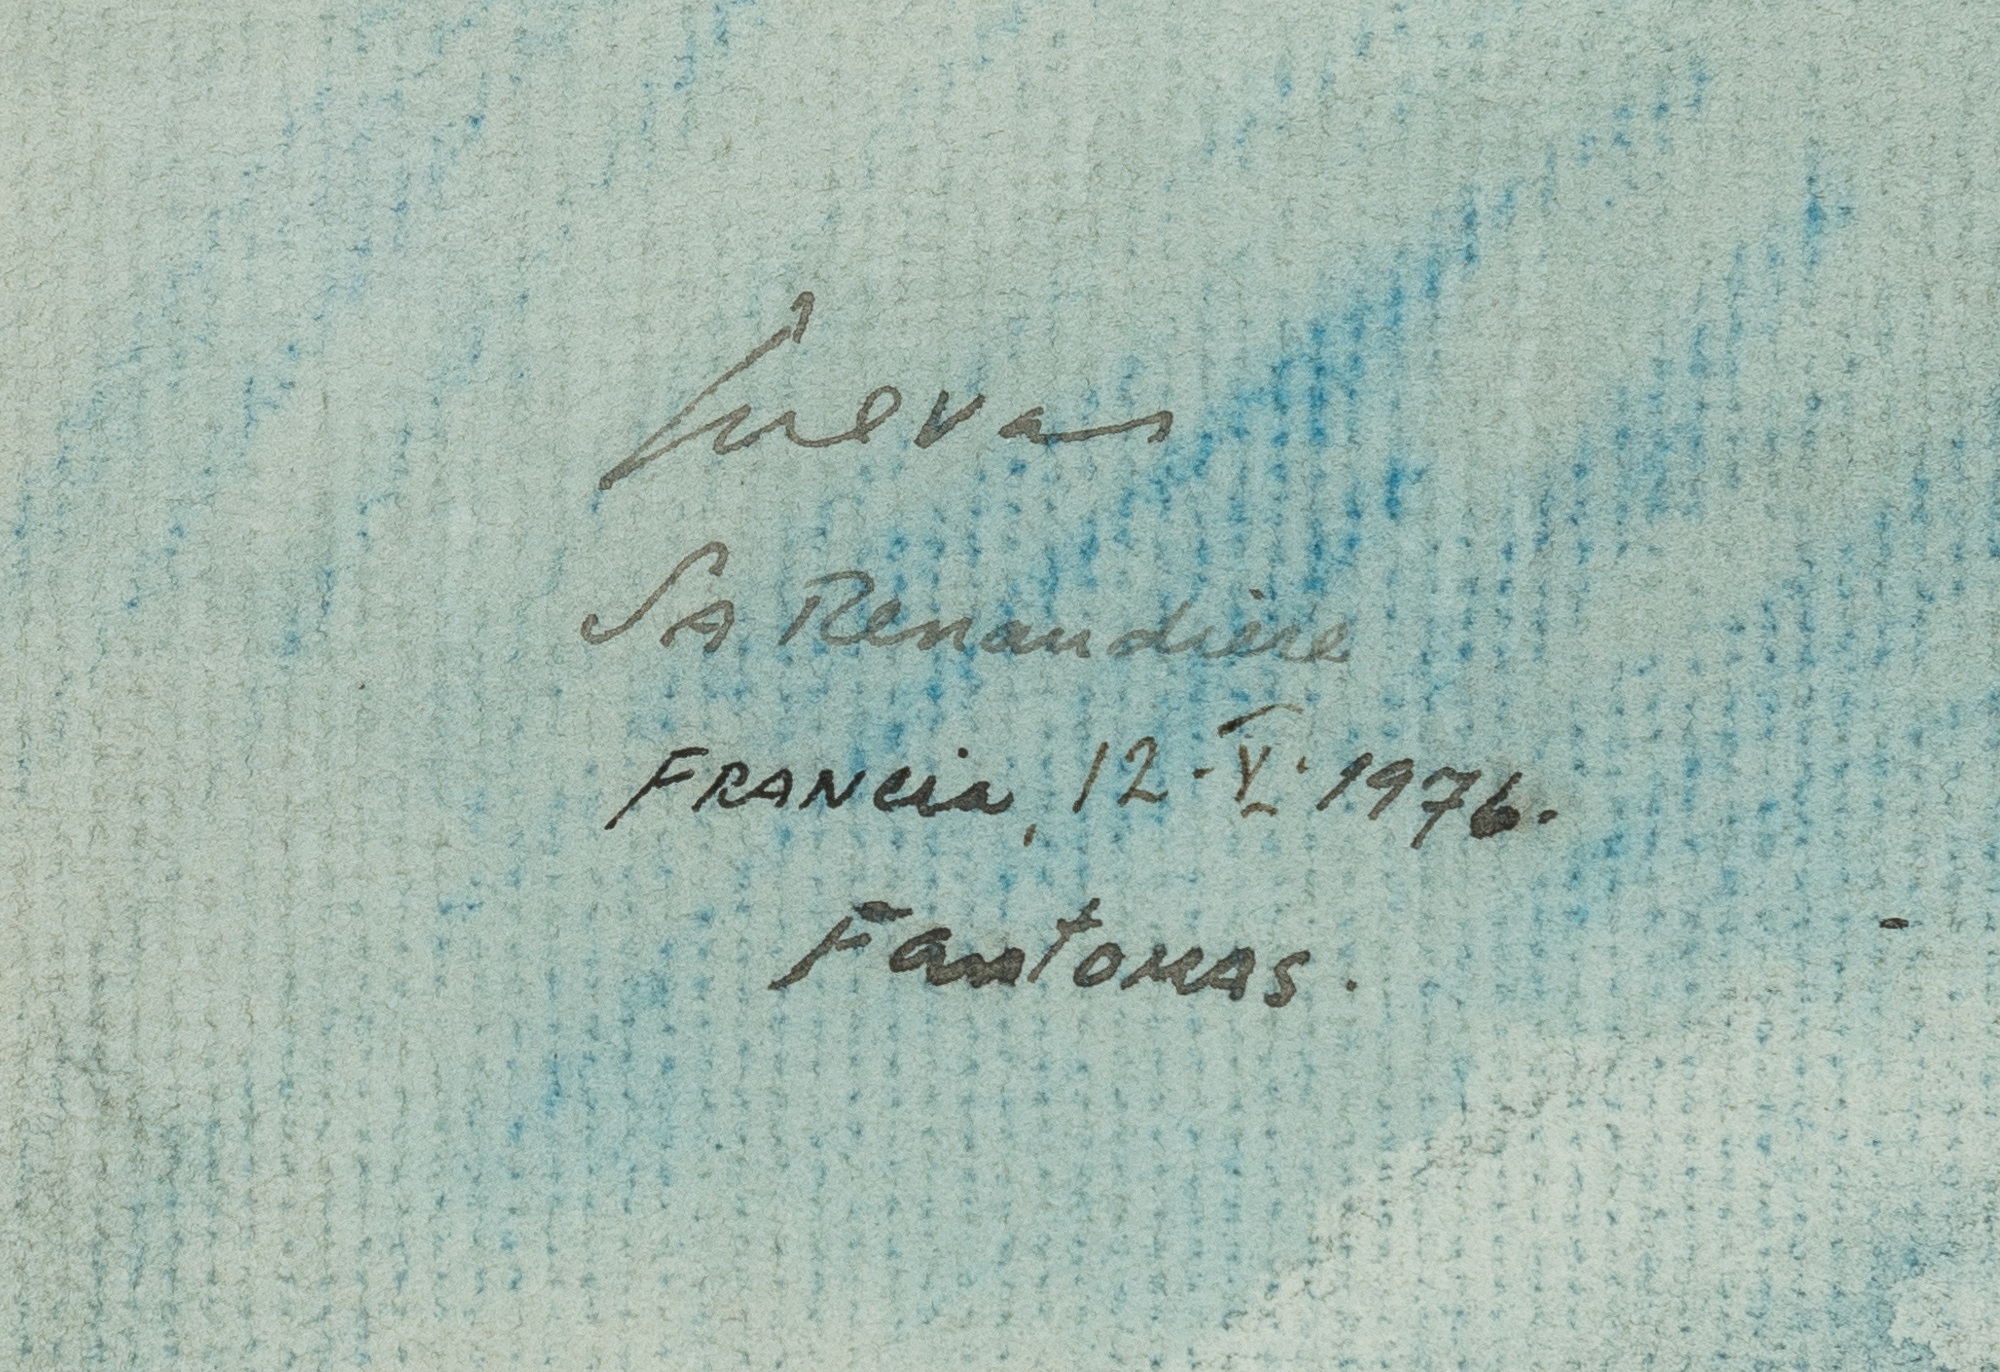 Cuevas
La Renaudiere
FRANCia, 12-V-1976.
Fantomas.